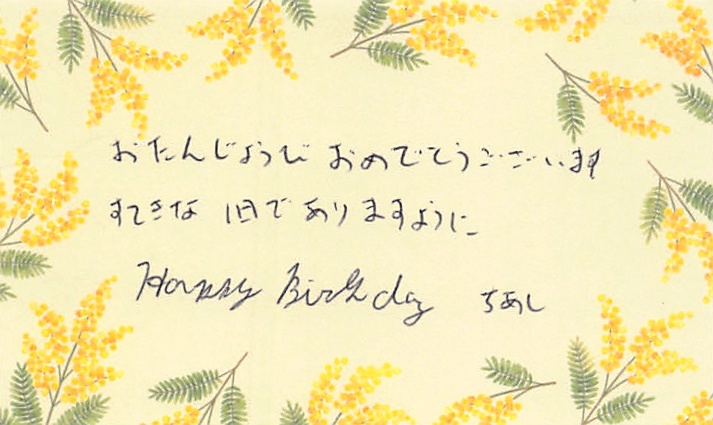 おたんじょうび おめでとうございます
すてきな 1日で ありますように
Happy Birthday ちあし